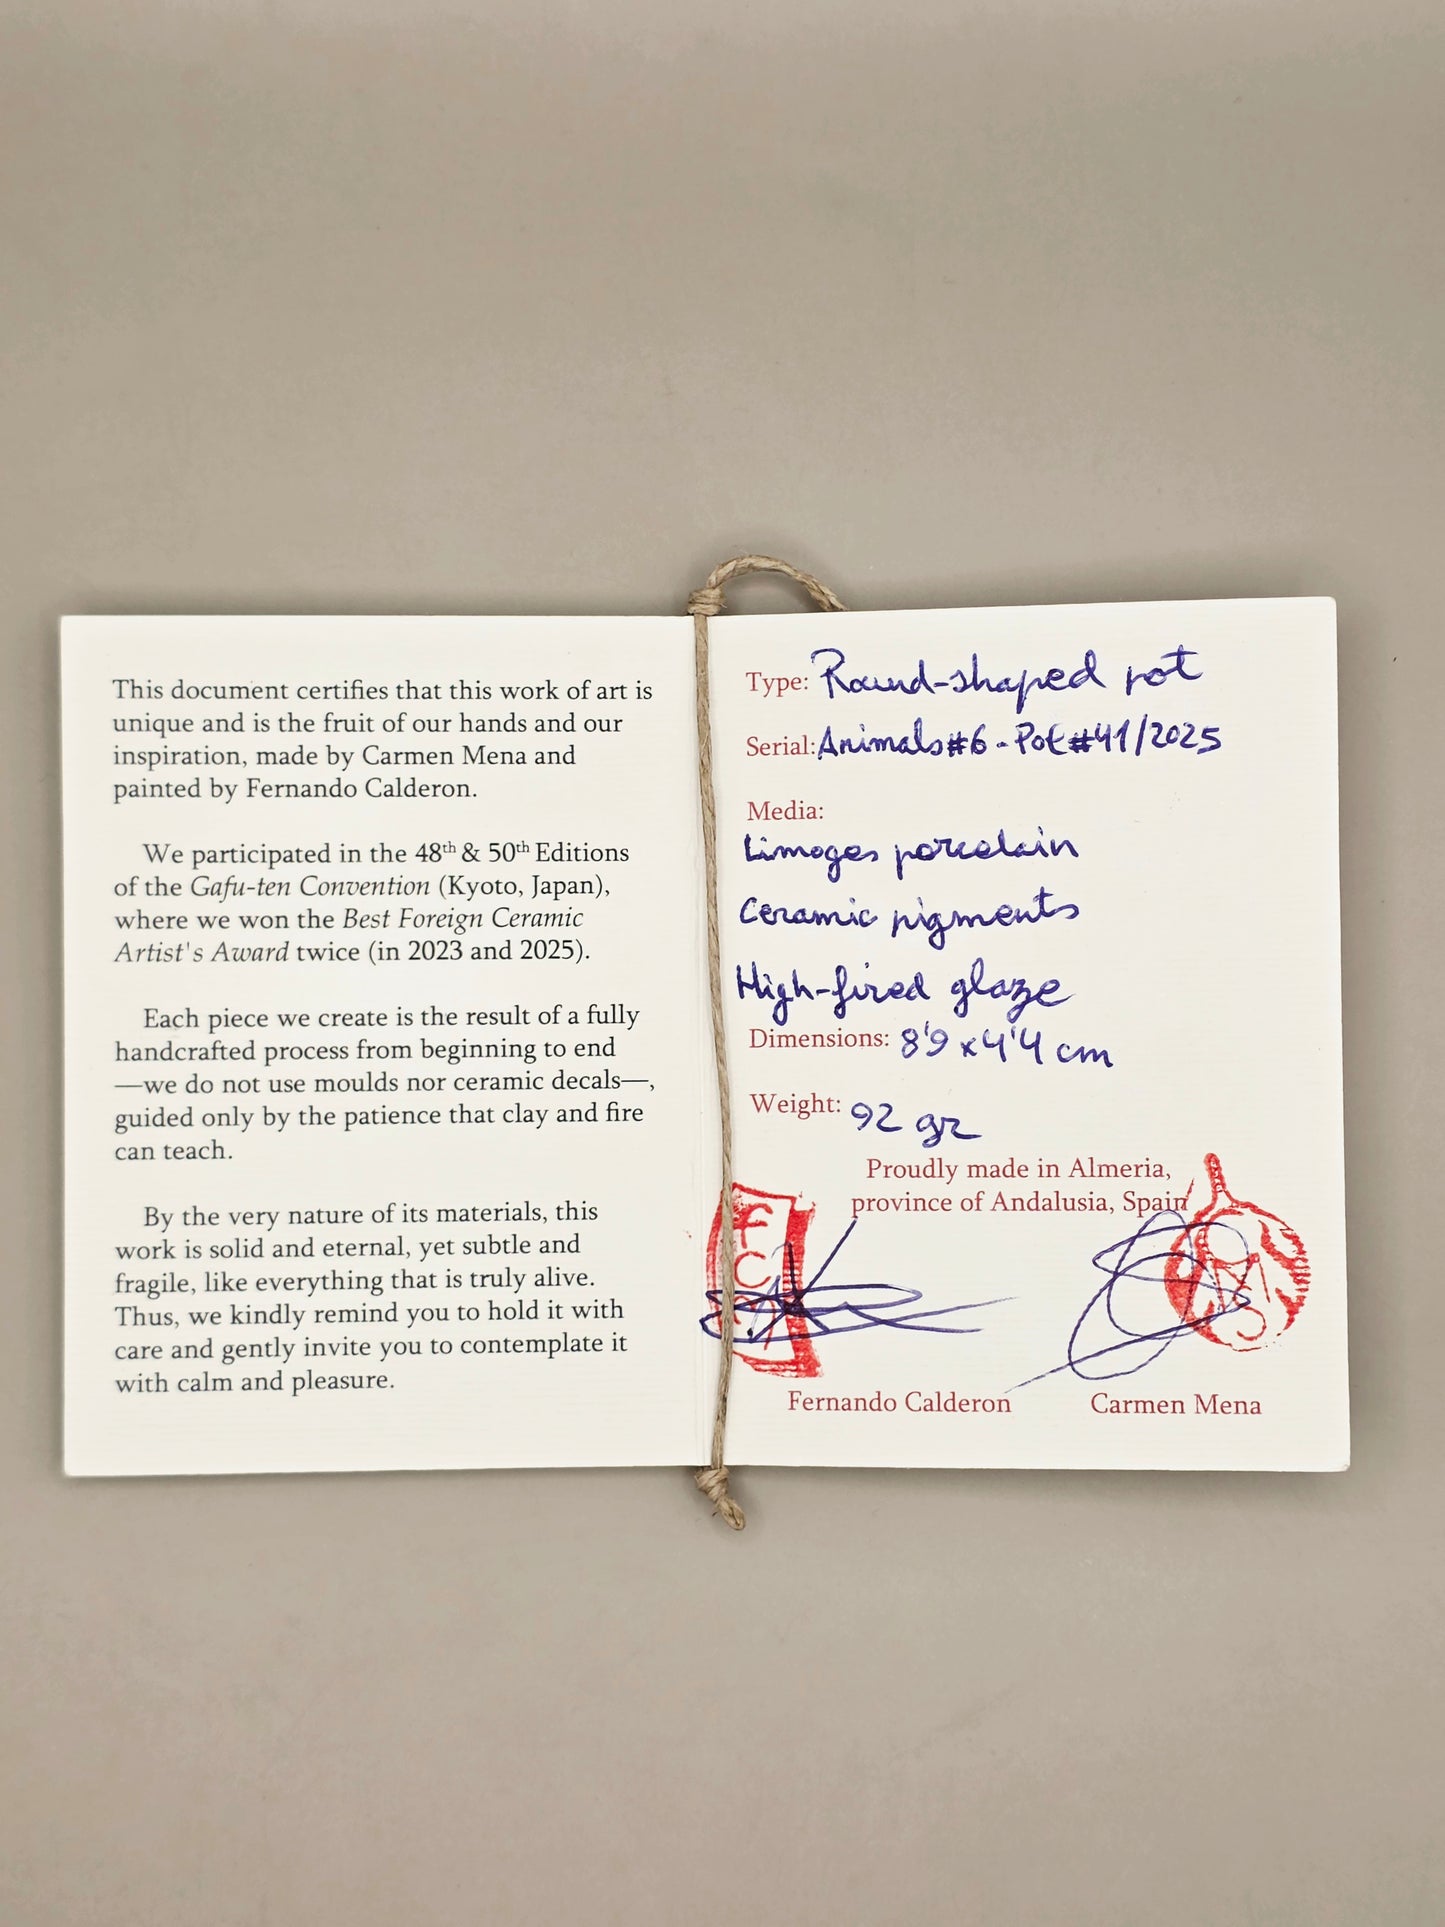 This document certifies that this work of art is
unique and is the fruit of our hands and our
inspiration, made by Carmen Mena and
painted by Fernando Calderon.
We participated in the 48th & 50th Editions
of the Gafu-ten Convention (Kyoto, Japan),
where we won the Best Foreign Ceramic
Artist's Award twice (in 2023 and 2025).
Each piece we create is the result of a fully
handcrafted process from beginning to end
—we do not use moulds nor ceramic decals—,
guided only by the patience that clay and fire
can teach.
By the very nature of its materials, this
work is solid and eternal, yet subtle and
fragile, like everything that is truly alive.
Thus, we kindly remind you to hold it with
care and gently invite you to contemplate it
with calm and pleasure.
Type: Round-shaped pot
Serial: Animals #6 - Pot #41/2025
Media:
Limoges porcelain
Ceramic pigments
High-fired glaze
Dimensions: 8'9 x 4'4 cm
Weight: 92 gr
Proudly made in Almeria,
province of Andalusia, Spain
Fernando Calderon
Carmen Mena